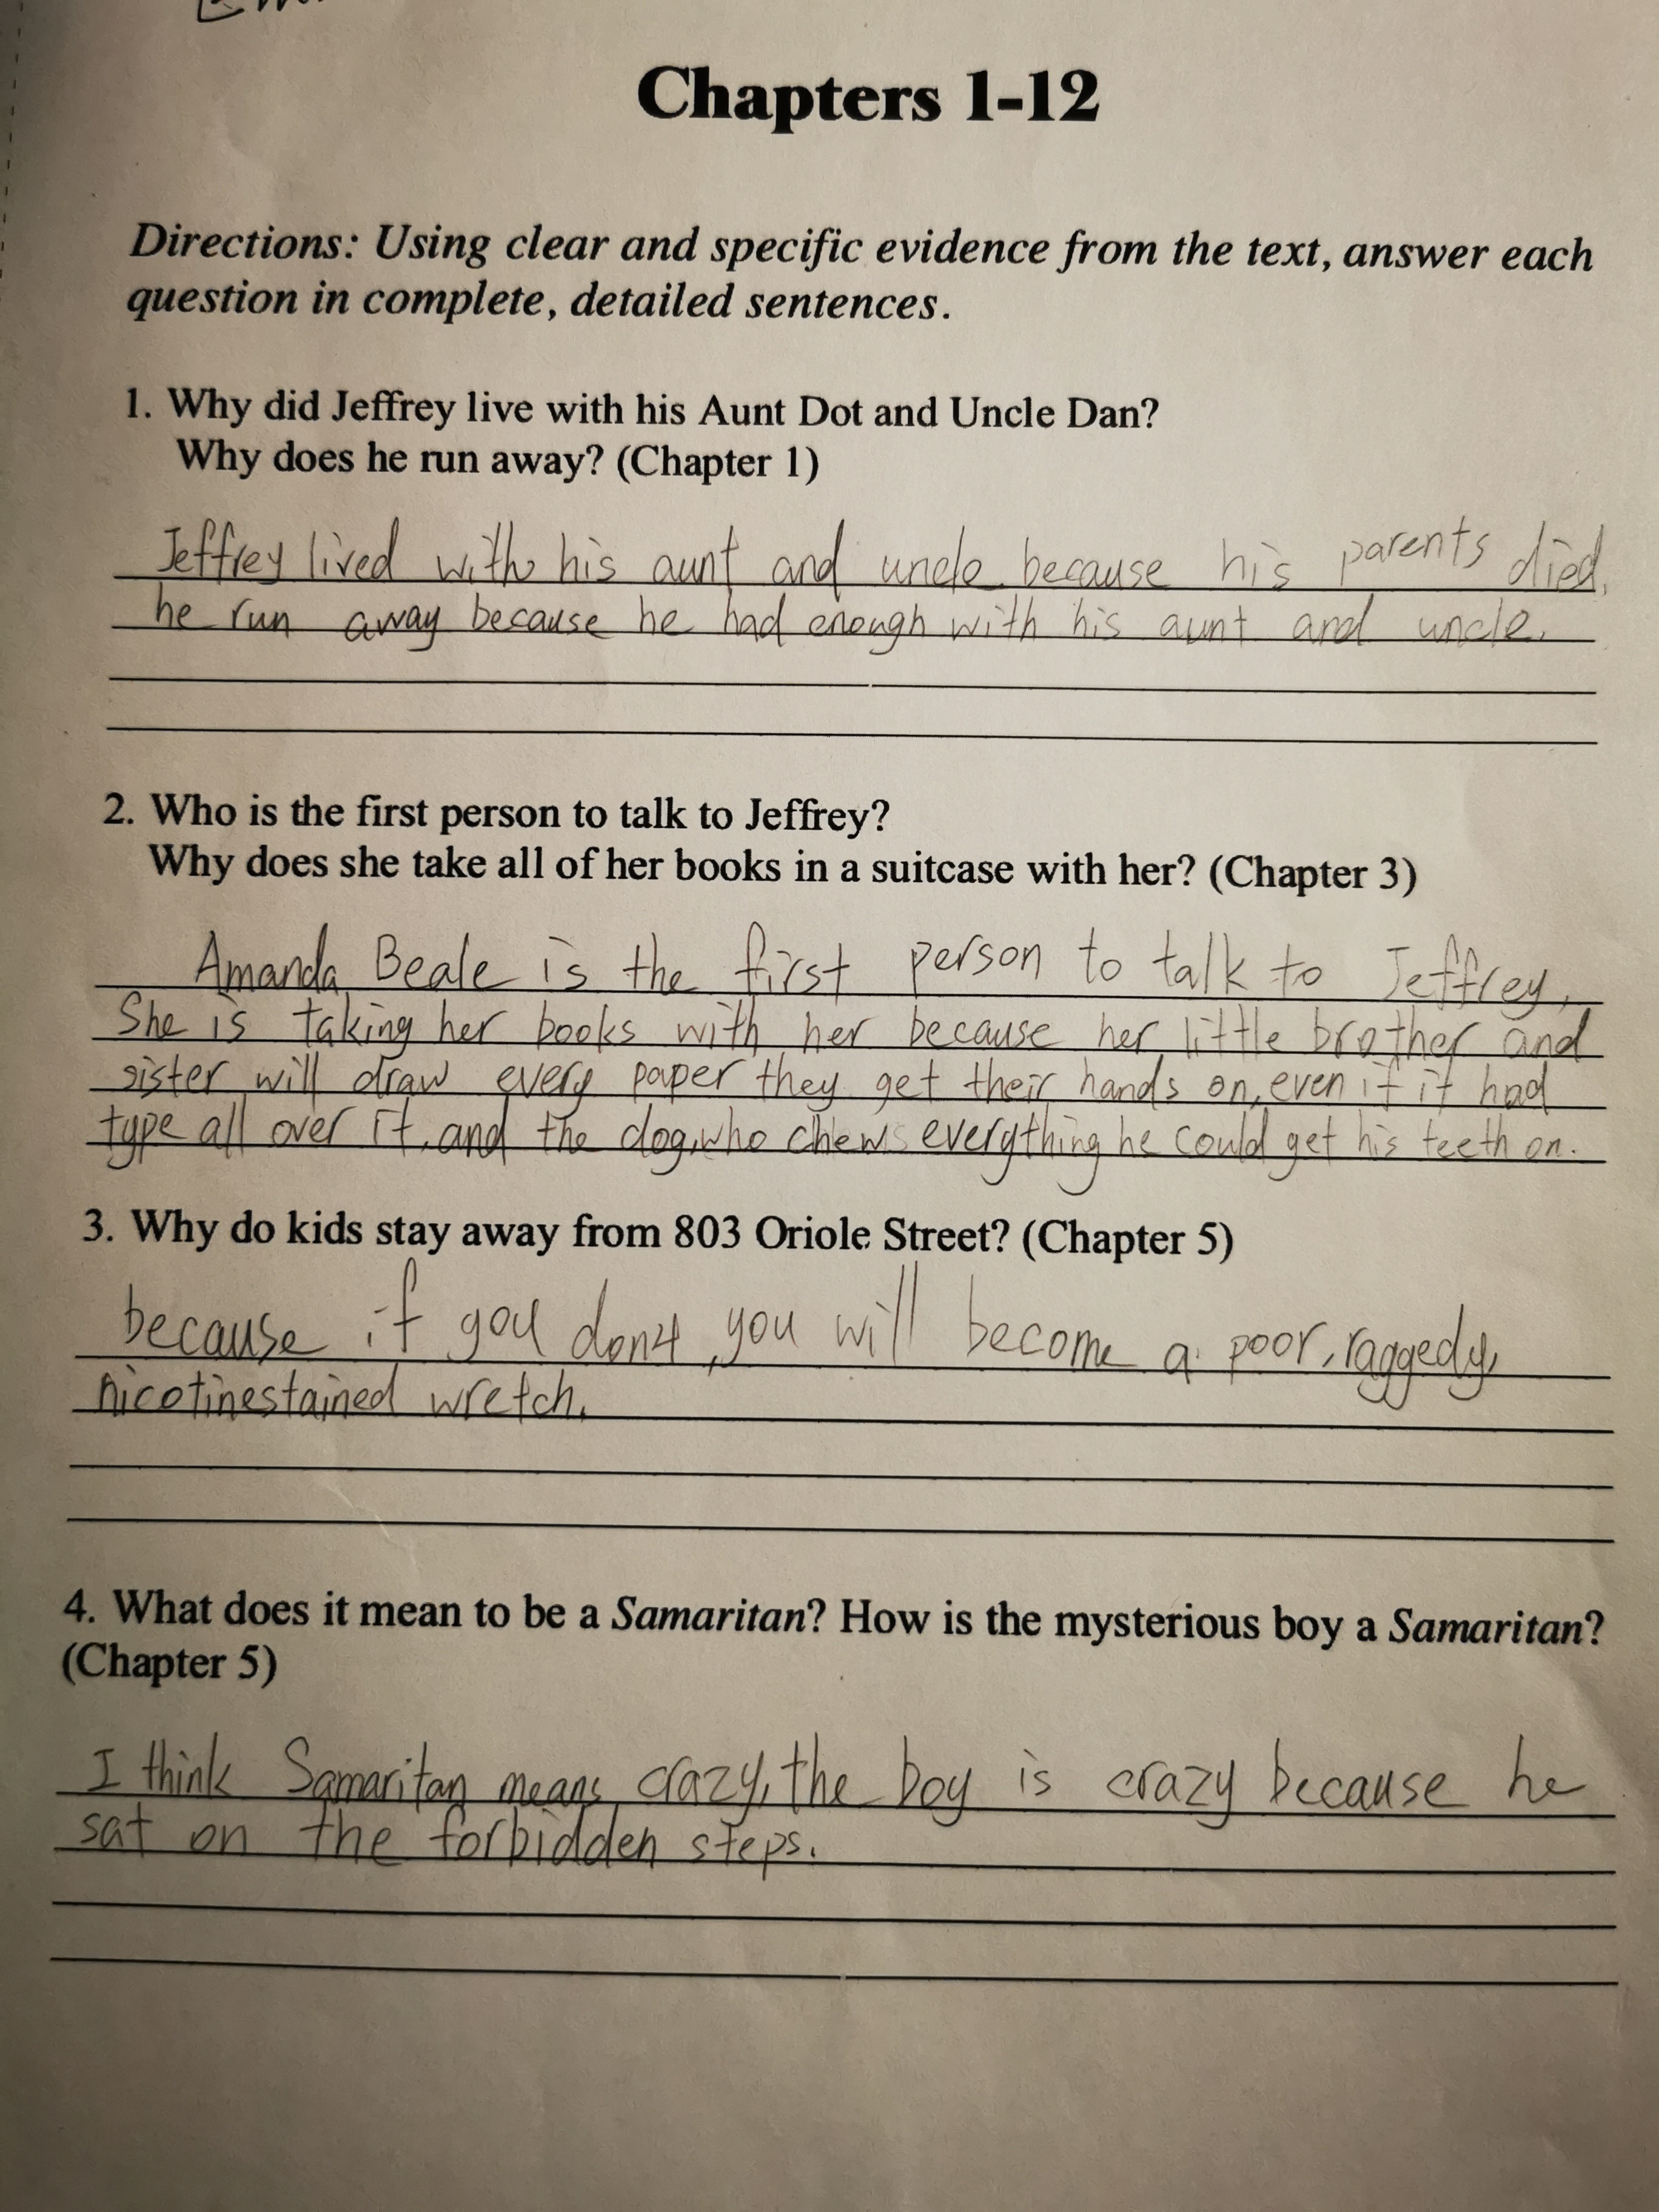 Chapters 1-12
Directions: Using clear and specific evidence from the text, answer each
question in complete, detailed sentences.
1. Why did Jeffrey live with his Aunt Dot and Uncle Dan?
Why does he run away? (Chapter 1)
Jeffrey lived with his aunt and uncle because his parents died,
he run away because he had enough with his aunt and uncle.
2. Who is the first person to talk to Jeffrey?
Why does she take all of her books in a suitcase with her? (Chapter 3)
Amanda Beale is the first person to talk to Jeffrey,
She is taking her books with her because her little brother and
sister will draw every paper they get their hands on, even if it had
type all over it, and the dog, who chews everything he could get his teeth on.
3. Why do kids stay away from 803 Oriole Street? (Chapter 5)
because if you don't, you will become a poor, raggedy,
nicotinestained wretch.
4. What does it mean to be a Samaritan? How is the mysterious boy a Samaritan?
(Chapter 5)
I think Samaritan means crazy, the boy is crazy because he
sat on the forbidden steps.